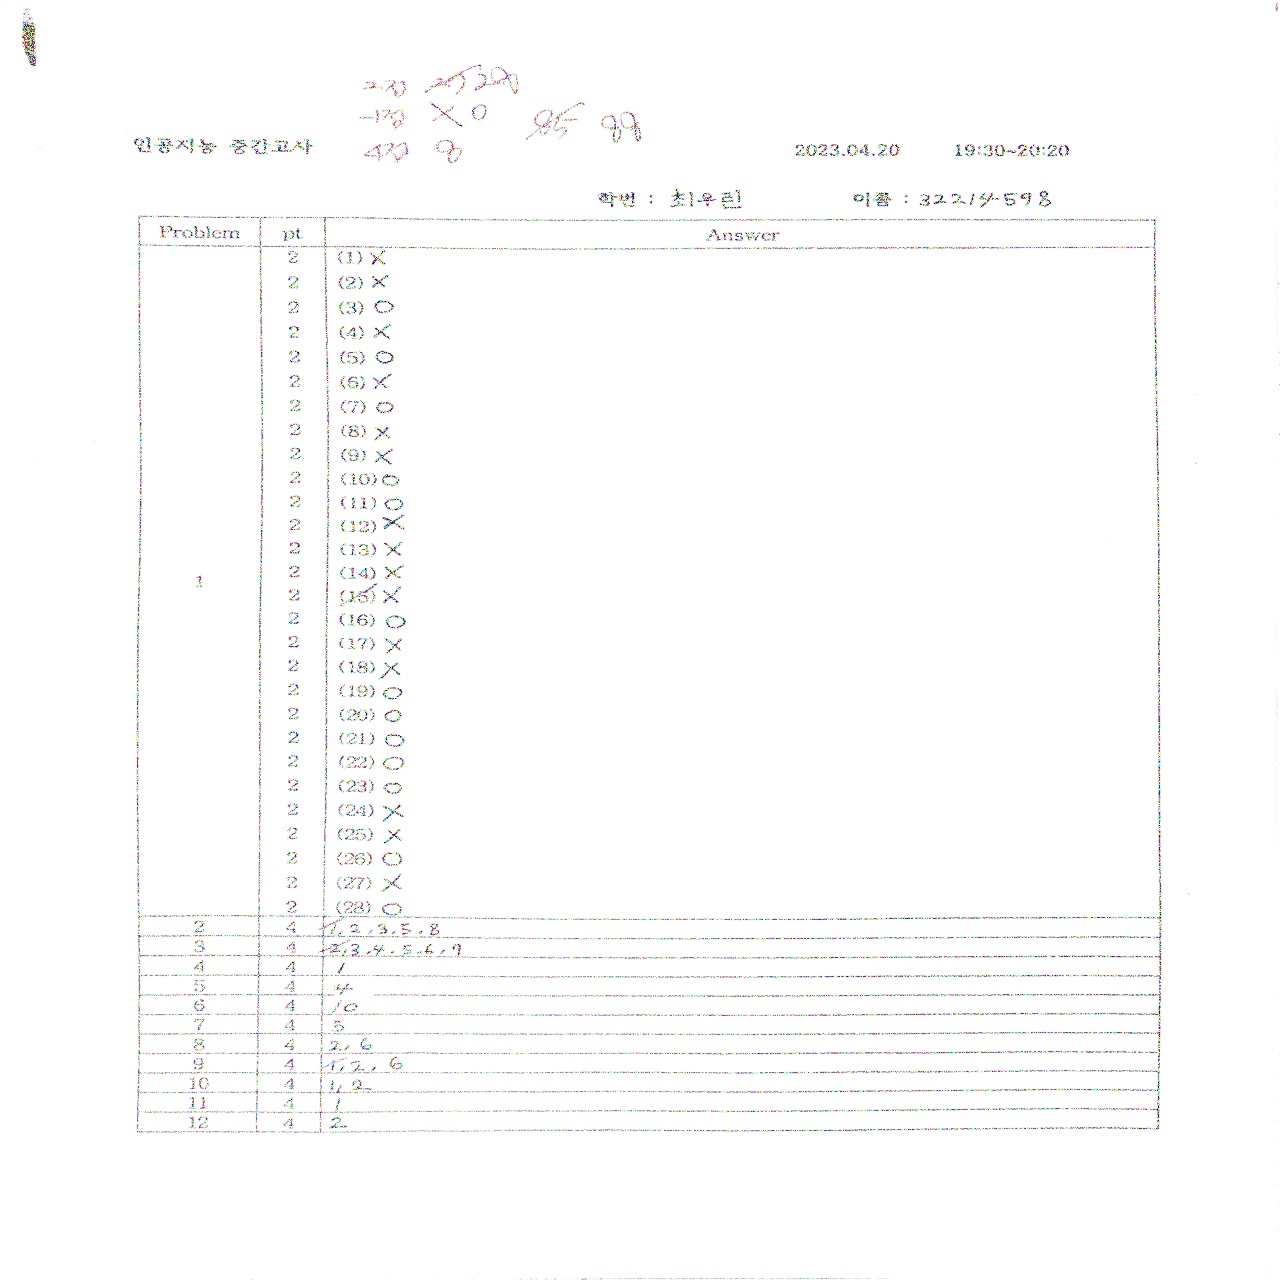 인공지능 중간고사
2023.04.20 19:30~20:20
학번 : 최우린 이름 : 32214598
Problem pt Answer
1
2 (1) X
2 (2) X
2 (3) O
2 (4) X
2 (5) O
2 (6) X
2 (7) O
2 (8) X
2 (9) X
2 (10) O
2 (11) O
2 (12) X
2 (13) X
2 (14) X
2 (15) X
2 (16) O
2 (17) X
2 (18) X
2 (19) O
2 (20) O
2 (21) O
2 (22) O
2 (23) O
2 (24) X
2 (25) X
2 (26) O
2 (27) X
2 (28) O
2 4 1, 2, 3, 5, 8
3 4 2, 3, 4, 5, 6, 7
4 4 1
5 4 4
6 4 10
7 4 5
8 4 2, 6
9 4 1, 2, 6
10 4 1, 2
11 4 1
12 4 2